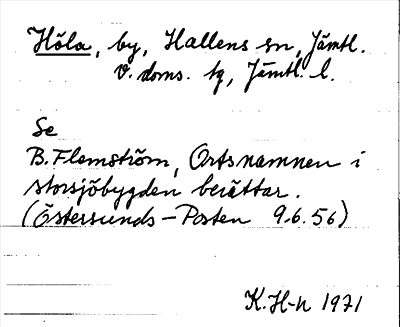 Höla, by, Hallens sn, Jämtl.
v. doms. tg, Jämtl. l.
Se
B. Flemström, Ortsnamnen i
storsjöbygden berättar.
(Östersunds-Posten 9.6.56)
K. H-n 1971